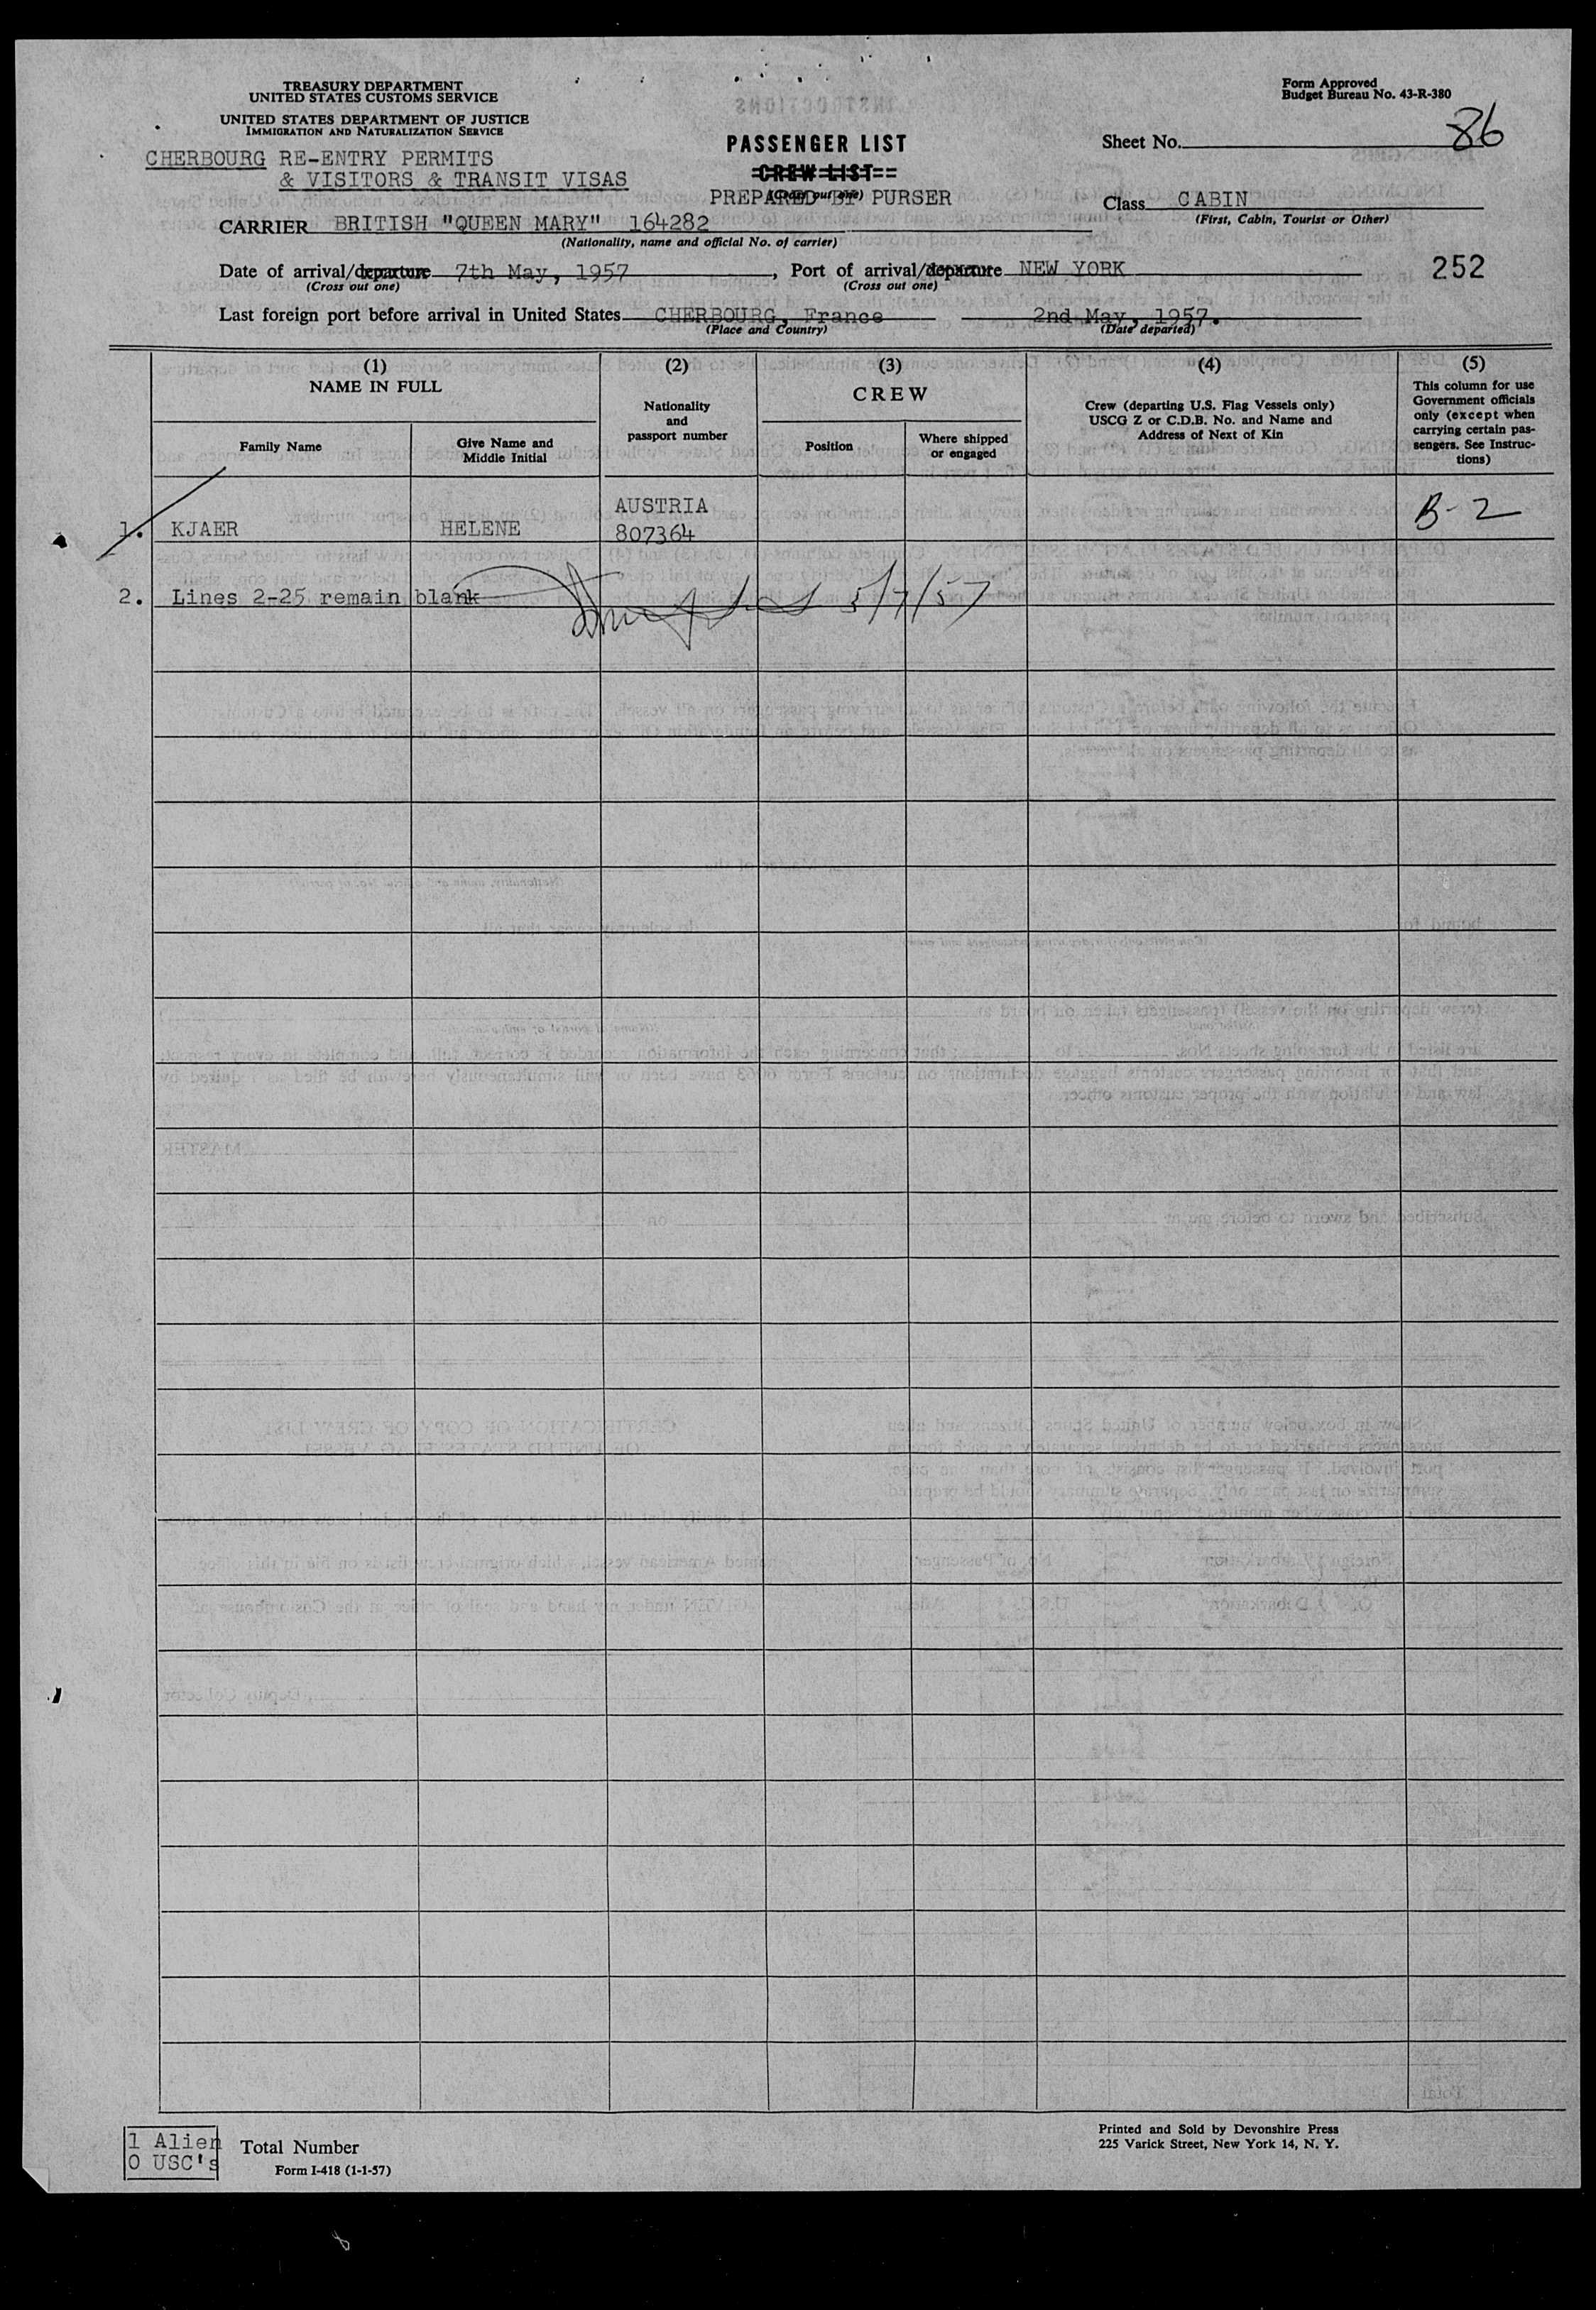 TREASURY DEPARTMENT
UNITED STATES CUSTOMS SERVICE
UNITED STATES DEPARTMENT OF JUSTICE
IMMIGRATION AND NATURALIZATION SERVICE
CHERBOURG RE-ENTRY PERMITS
& VISITORS & TRANSIT VISAS
PASSENGER LIST
CREW LIST
(Cross out one)
PREPARED BY PURSER
Form Approved
Budget Bureau No. 43-R-380
Sheet No. 86
Class CABIN
(First, Cabin, Tourist or Other)
CARRIER BRITISH "QUEEN MARY" 164282
(Nationality, name and official No. of carrier)
Date of arrival/departure 7th May, 1957, Port of arrival/departure NEW YORK 252
(Cross out one) (Cross out one)
Last foreign port before arrival in United States CHERBOURG, France 2nd May, 1957.
(Place and Country) (Date departed)
(1)
NAME IN FULL
Family Name
Give Name and
Middle Initial
(2)
Nationality
and
passport number
(3)
CREW
Position
Where shipped
or engaged
(4)
Crew (departing U.S. Flag Vessels only)
USCG Z or C.D.B. No. and Name and
Address of Next of Kin
(5)
This column for use
Government officials
only (except when
carrying certain pas-
sengers. See Instruc-
tions)
AUSTRIA
1. KJAER HELENE 807364 B-2
2. Lines 2-25 remain blank 5/7/57
1 Alien
0 USC's
Total Number
Form I-418 (1-1-57)
Printed and Sold by Devonshire Press
225 Varick Street, New York 14, N. Y.